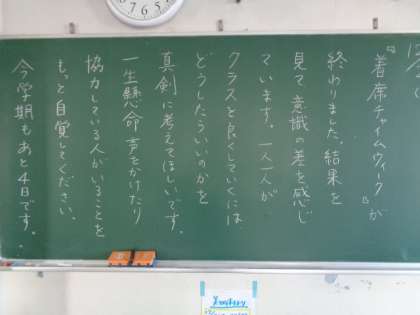 『着席チャイムウィーク』が
終わりました。結果を
見て意識の差を感じ
ています。一人一人が
クラスを良くしていくには
どうしたらいいのかを
真剣に考えてほしいです。
一生懸命声をかけたり
協力している人がいることを
もっと自覚してください。
今学期もあと4日です。